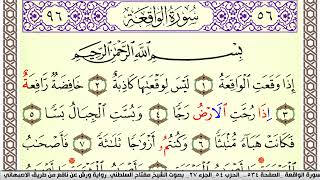 ٥٦ سُورَةُ الوَاقِعَة ٩٦
بِسْمِ اللَّهِ الرَّحْمَٰنِ الرَّحِيمِ
إِذَا وَقَعَتِ الْوَاقِعَةُ ١ لَيْسَ لِوَقْعَتِهَا كَاذِبَةٌ ٢ خَافِضَةٌ رَّافِعَةٌ
٣ إِذَا رُجَّتِ الْأَرْضُ رَجًّا ٤ وَبُسَّتِ الْجِبَالُ بَسًّا ٥
فَكَانَتْ هَبَاءً مُّنْبَثًّا ٦ وَكُنتُمُ أَزْوَاجًا ثَلَاثَةً ٧ فَأَصْحَابُ
سورة الواقعة . الصفحة ٥٣٤ . الحزب ٥٤ . الجزء ٢٧ . بصوت الشيخ مفتاح السلطني . رواية ورش عن نافع من طريق الاصبهاني